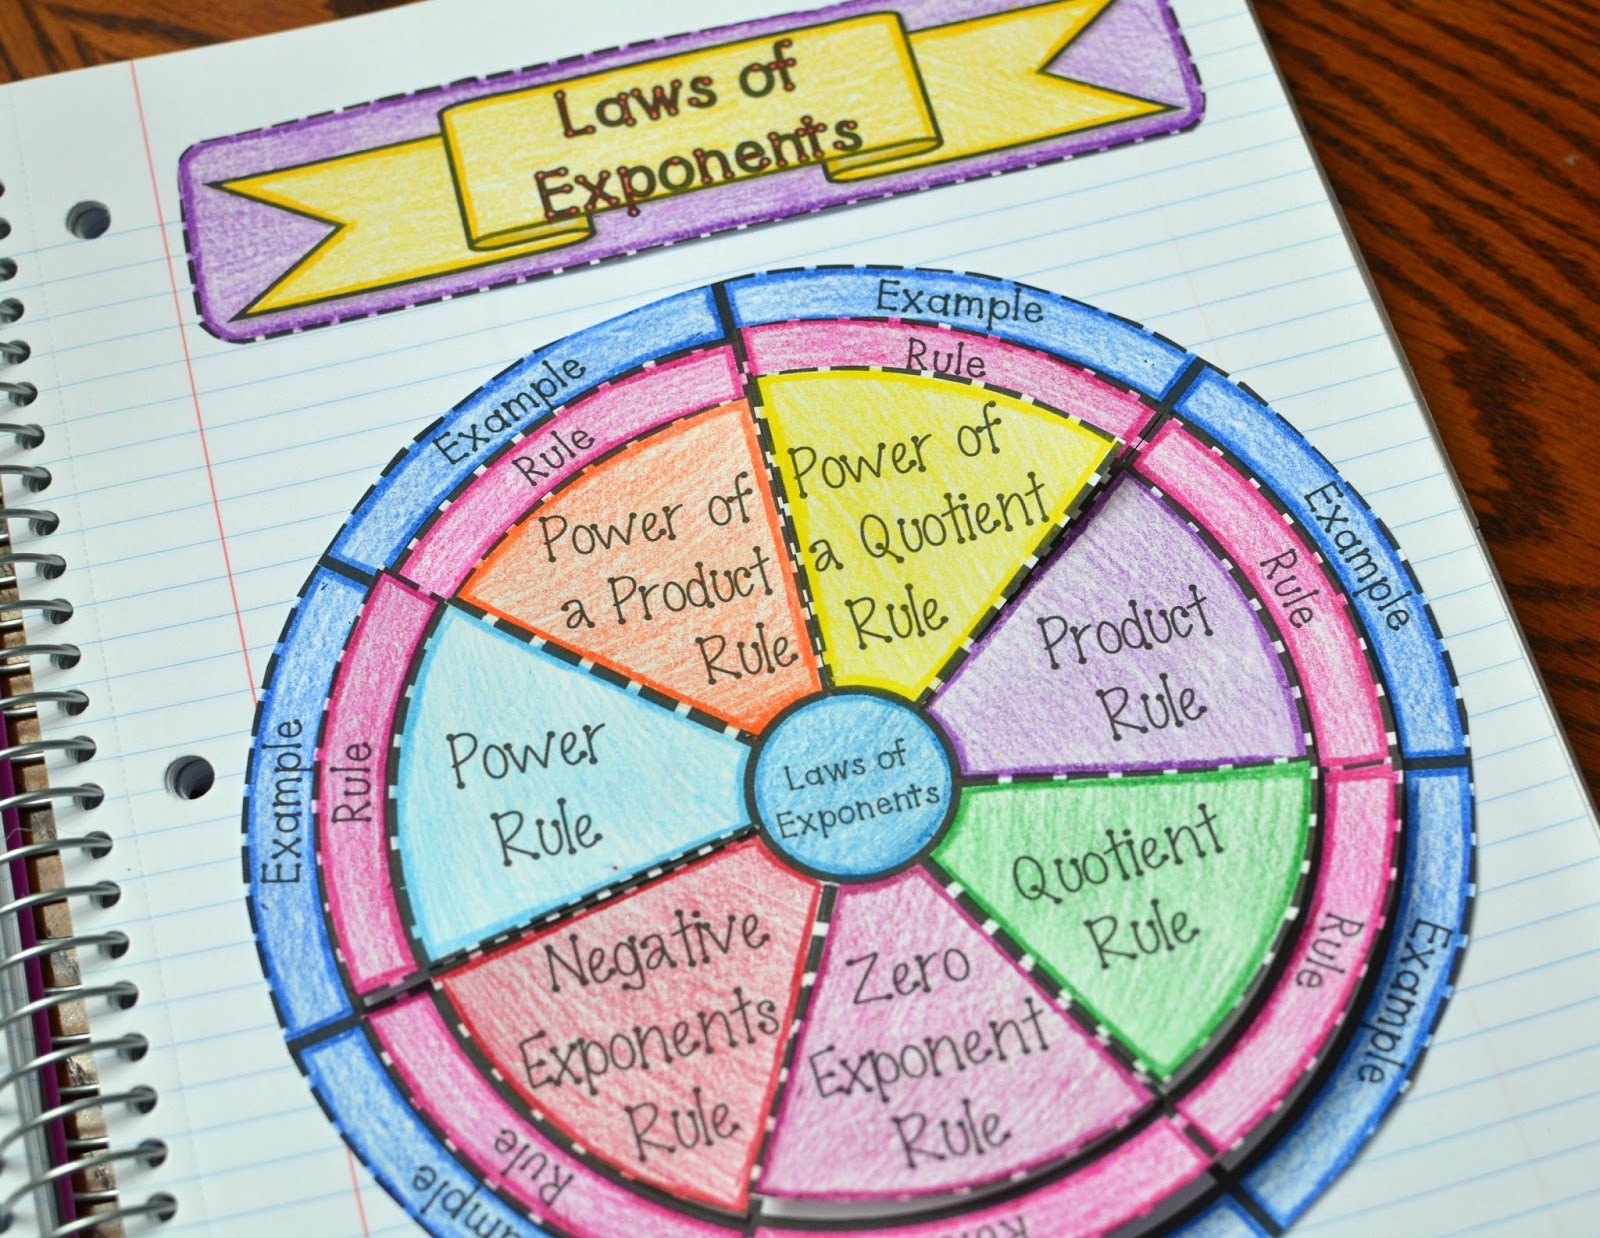 Laws of
Exponents
Example
Rule
Power of
a Quotient
Rule
Example
Rule
Product
Rule
Example
Rule
Quotient
Rule
Rule
Zero
Exponent
Rule
Rule
Negative
Exponents
Rule
Example
Rule
Power
Rule
Example
Rule
Power of
a Product
Rule
Laws of
Exponents